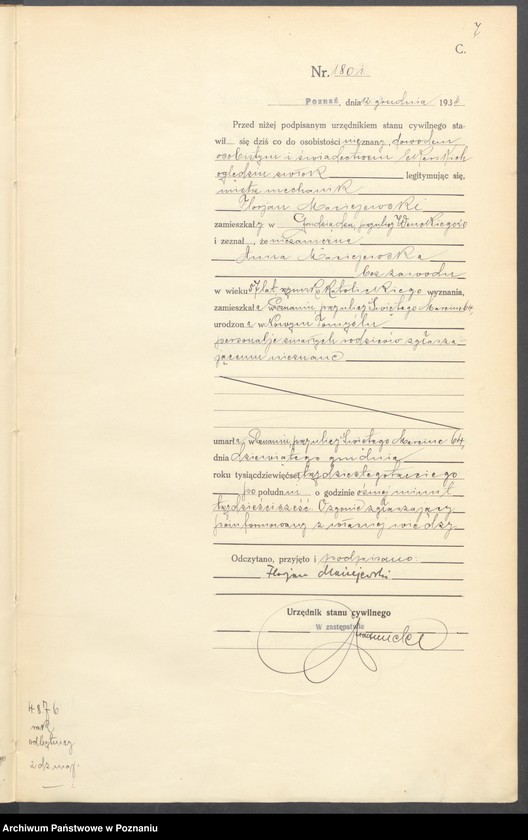 7
C.
Nr. 1801
Poznań, dnia 12 grudnia 1933
Przed niżej podpisanym urzędnikiem stanu cywilnego sta-
wił się dziś co do osobistości nieznany, dowodem
osobistym i świadectwem lekarskich
oględzin zwłok legitymując się,
mechanik
Florjan Maciejewski
zamieszkały w Grudziądzu, przy ulicy
i zeznał, że niezamężna
Anna Maciejewska
bez zawodu
w wieku 57 lat, rzymsko katolickiego wyznania,
zamieszkała w Poznaniu, przy ulicy Świętego Marcina 64,
urodzona w Nowym Tomyślu
personalje zmarłych rodziców zgłasza-
jącemu nieznane
umarła w Poznaniu, przy ulicy Świętego Marcina 64,
dnia dziewiątego grudnia
roku tysiącdziewięćset trzydziestego trzeciego
po południu o godzinie ósmej minut
trzydzieści sześć. O zgonie zgłaszający
poinformowany z własnej wiedzy
Odczytano, przyjęto i podpisano:
Florjan Maciejewski
Urzędnik stanu cywilnego
W zastępstwie
4876
Archiwum Państwowe w Poznaniu